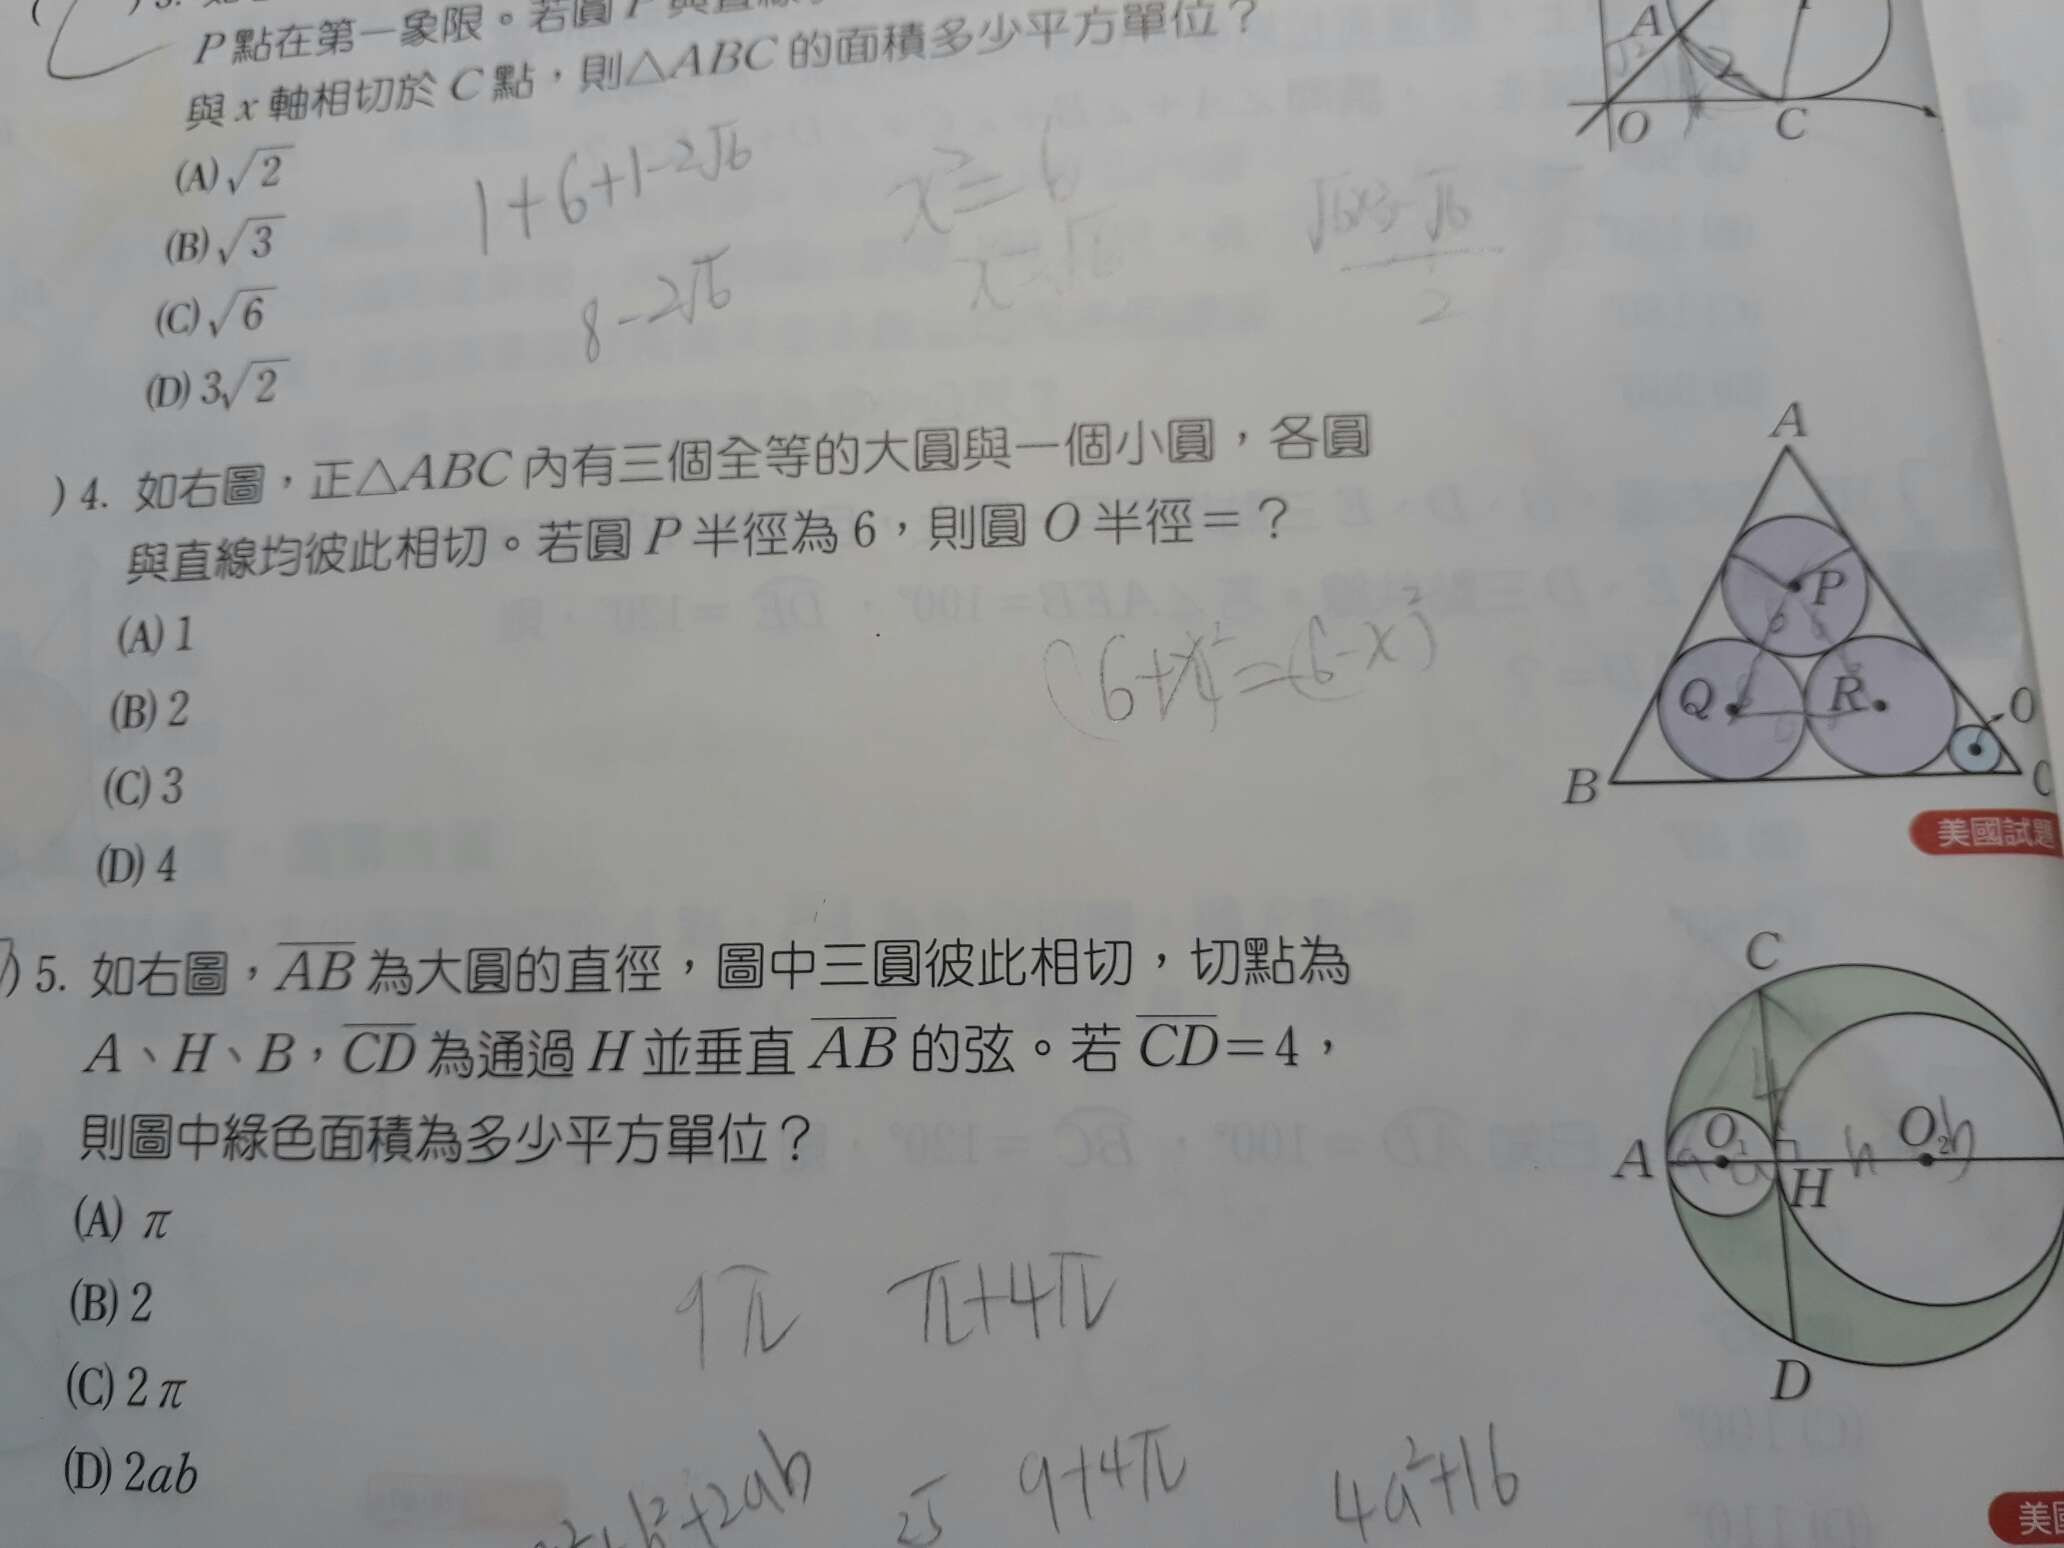 P 點在第一象限。若圓 P 與直線
與 x 軸相切於 C 點，則△ABC 的面積多少平方單位？
(A) √2
(B) √3
(C) √6
(D) 3√2
1+6+1-2√6
8-2√6
x²=6
x=√6
√6×3-√6
2
A
2
O
C
)4. 如右圖，正△ABC 內有三個全等的大圓與一個小圓，各圓
與直線均彼此相切。若圓 P 半徑為 6，則圓 O 半徑=？
(A) 1
(B) 2
(C) 3
(D) 4
(6+x)²=(6-x)²
A
P
Q
R
O
B
C
美國試題
)5. 如右圖，AB 為大圓的直徑，圖中三圓彼此相切，切點為
A、H、B，CD 為通過 H 並垂直 AB 的弦。若 CD=4，
則圖中綠色面積為多少平方單位？
(A) π
(B) 2
(C) 2π
(D) 2ab
9π
π+4π
b²+2ab
25
9+4π
4a²+16
C
4
A
O₁
H
O₂
b
D
美國